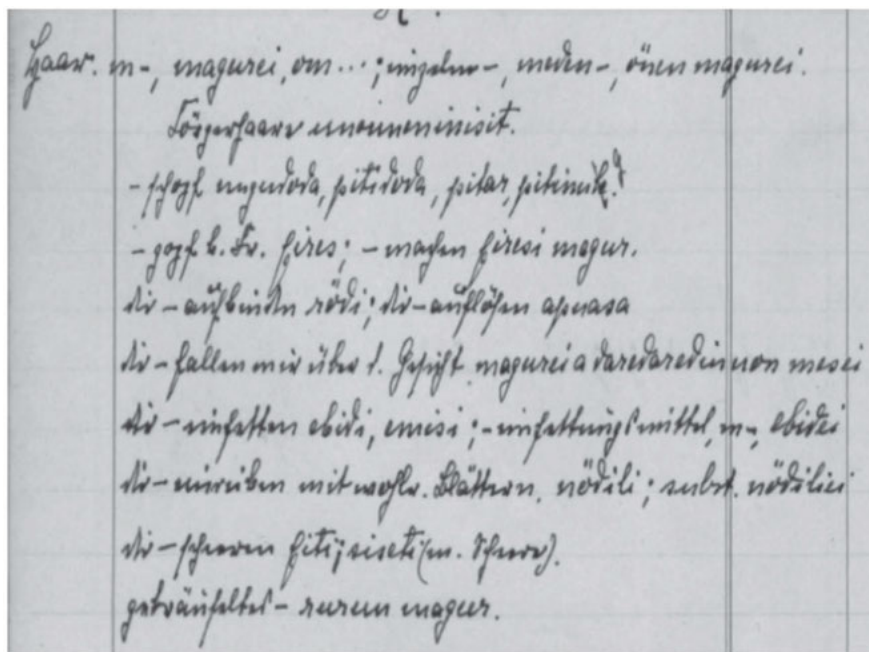 Haar. m-, magurei, om...; einzelne-, meden-, önen magurei.
Körperhaare unounouinisit.
-schopf mugudoda, pitidoda, pitar,
-zopf b. Fr. firesi; -machen firesi magur.
die-aufbinden rödi; die-auflösen apuasa
die-fallen mir über d. Gesicht magurei a daredaredin uon mesei
die-einfetten ebidi, emisi; -einfettungsmittel, m-, ebidei
die-einreiben mit wohlr. Blättern nödili; subst. nödilici
die-scheren fiti; siseti (m. Schere).
gekräuseltes- rurun magur.